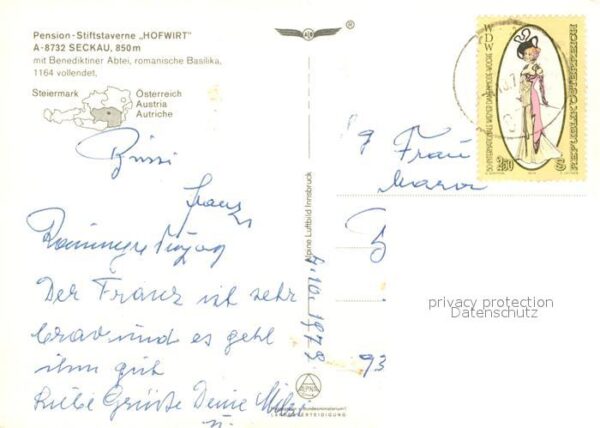 Pension - Stiftstaverne „HOFWIRT"
A-8732 SECKAU, 850 m
mit Benediktiner Abtei, romanische Basilika,
1164 vollendet.
Steiermark
Österreich
Austria
Autriche
Bussi
Franz
Der Franz ist sehr
brav und es geht
ihm gut
Liebe Grüße Deine
Alpine Luftbild Innsbruck
4.10.1978
WDW
REPUBLIK ÖSTERREICH
2.50
S
Frau
93
privacy protection
Datenschutz
ALPINE
LANDESVERTEIDIGUNG